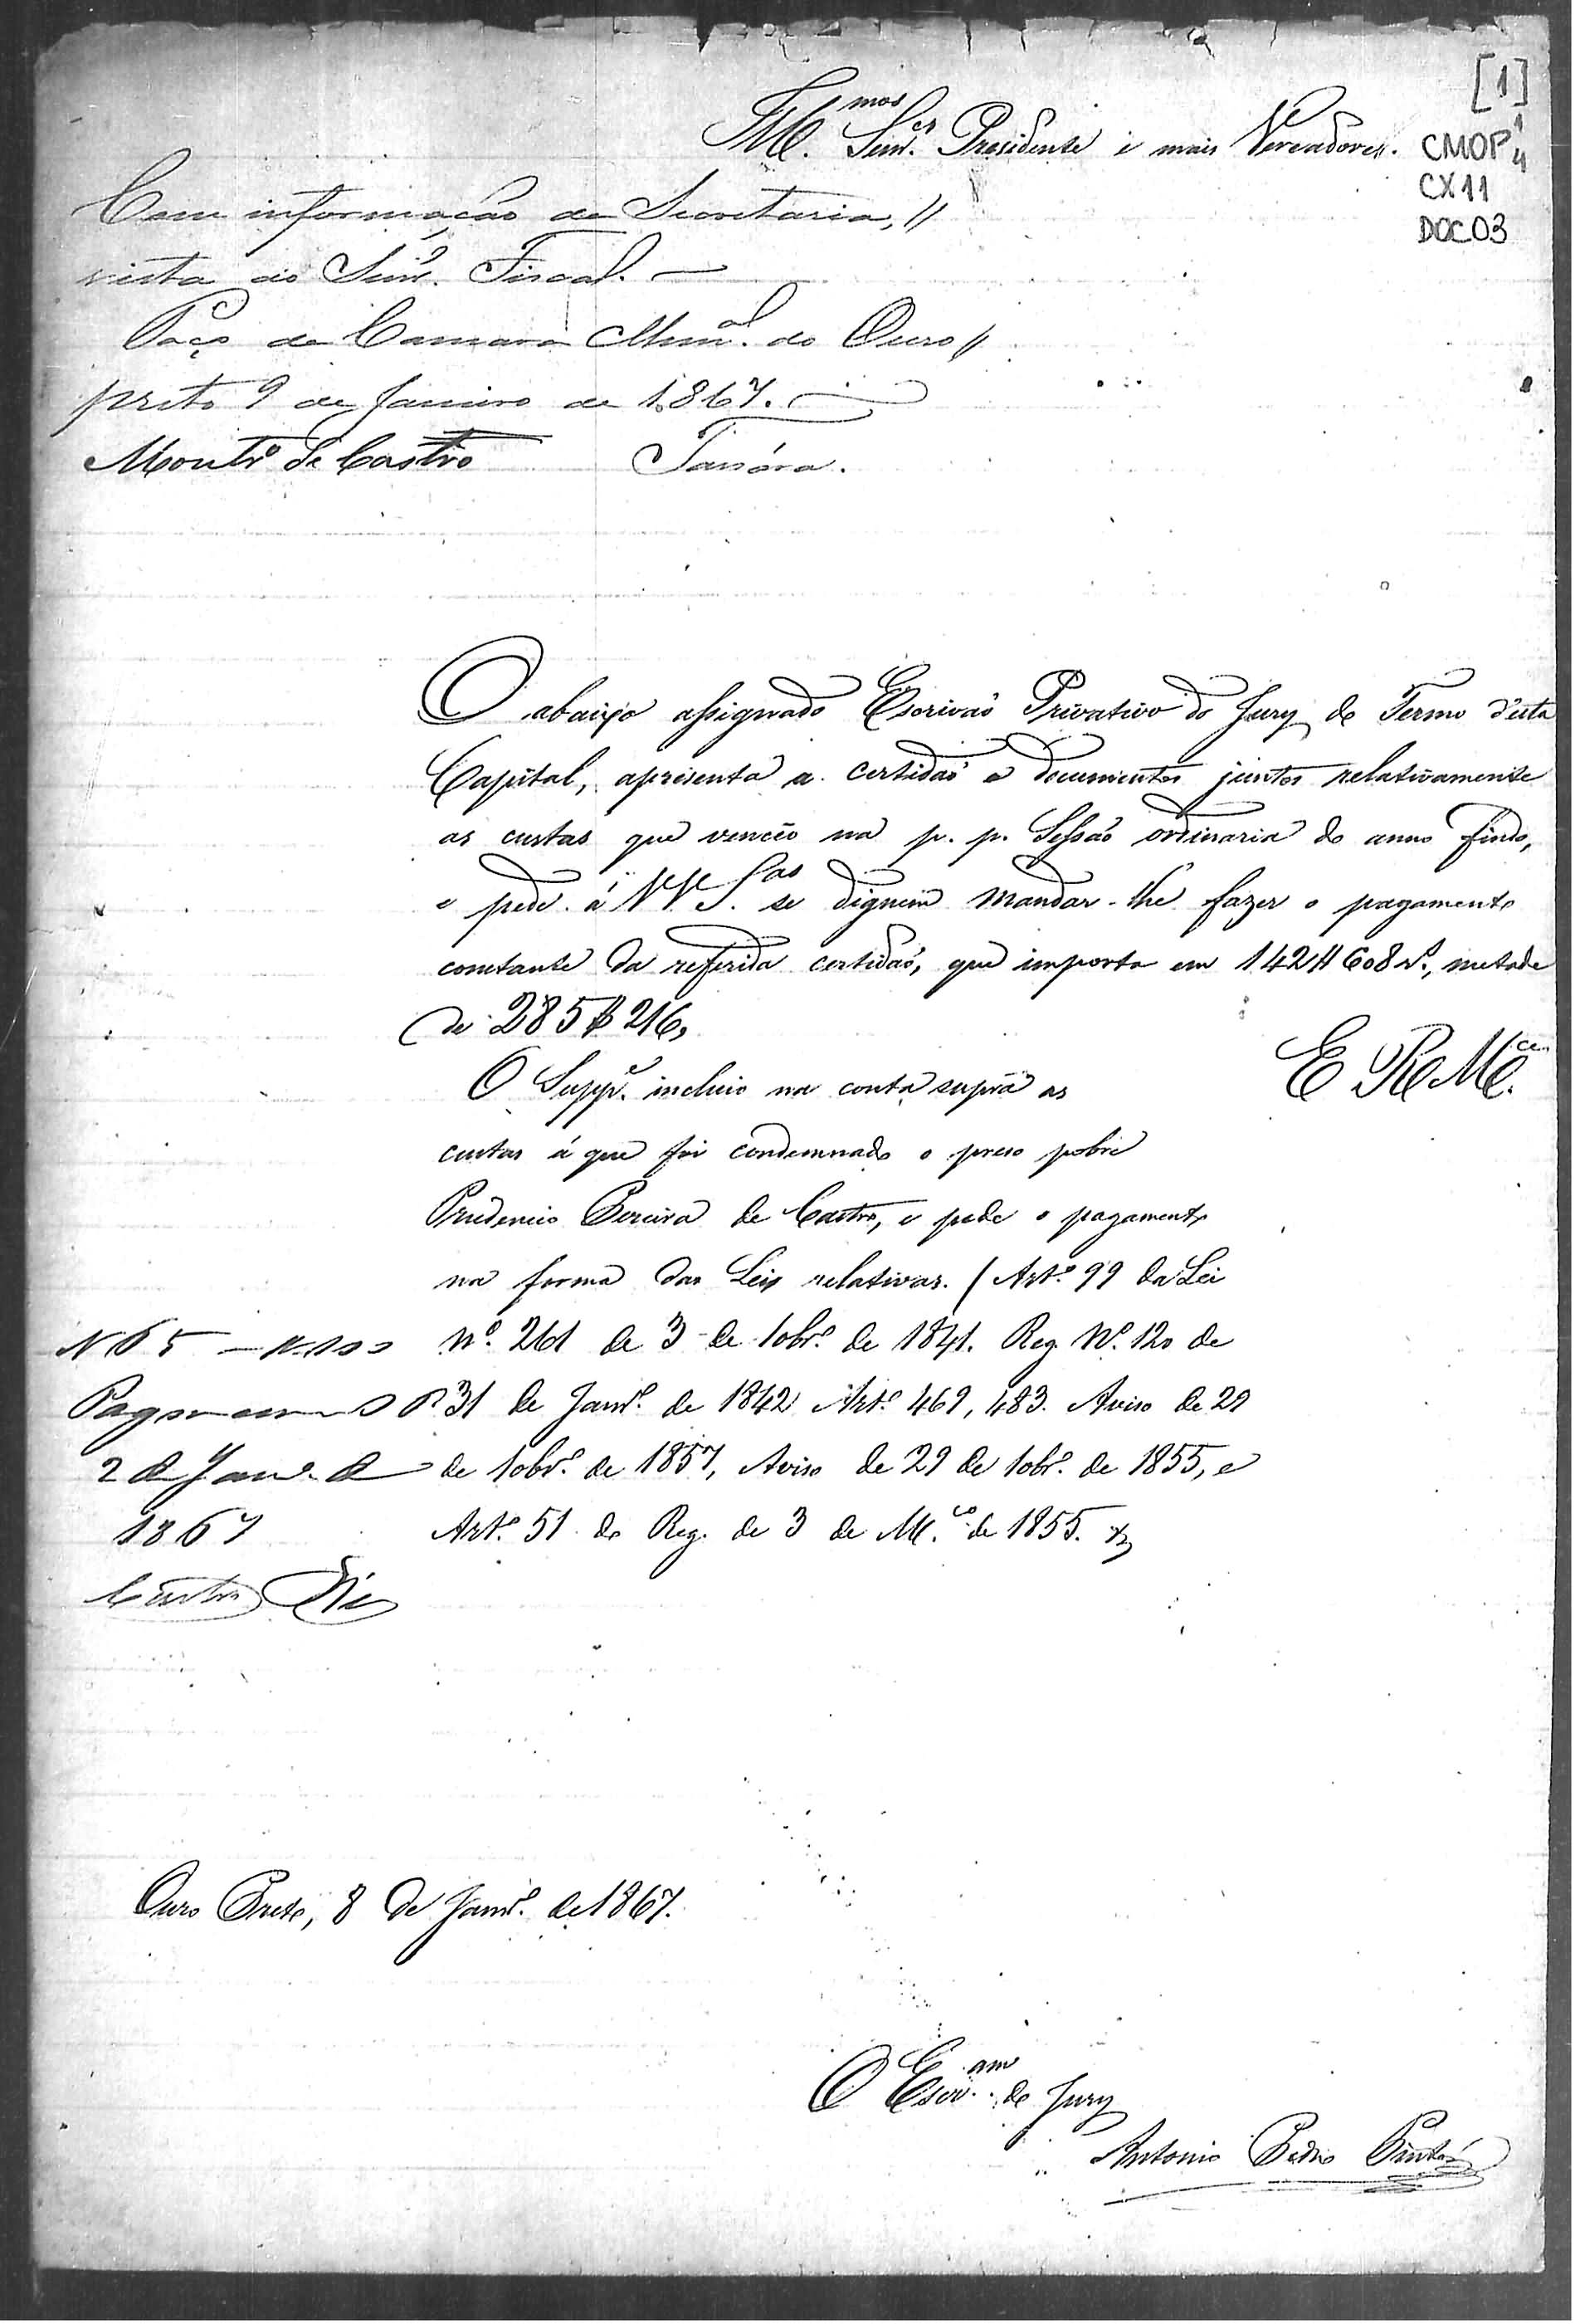 [1]
CMOP 1/4
CX11
DOC.03
Ill.mos Senr.es Presidente e mais Vereadores.
Com informação da Secretaria, //
vista ao Senr. Fiscal. —
Paço da Camara Mun.al do Ouro //
preto 9 de Janeiro de 1867.
Montr.o de Castro
O abaixo assignado Escrivaõ Privativo do Jury do Termo d'esta
Capital, apresenta a certidaõ e documentos juntos relativamente
as custas que venceo na p. p. Sessaõ ordinaria do anno findo,
e pede á VV. S.as se dignem mandar-lhe fazer o pagamento
constante da referida certidaõ, que importa em 142$608 r.s, metade
de 285$216,
E R M.ce
O Supp.e incluio na conta suprà as
custas á que foi condemnado o preso pobre
Prudencio Pereira de Castro, e pede o pagamento
na forma das Leis relativas. (Art.o 99 da Lei
N.o 261 de 3 de 10br.o de 1841. Reg. N.o 120 de
31 de Janr.o de 1842 Art.o 469, 483. Aviso de 29
de 10br.o de 1857, Aviso de 29 de 10br.o de 1855, e
Art.o 51 do Reg. de 3 de M.ço de 1855.
N 65
Pagou
2 de Janr.o de
1867
Castro
Ouro Preto, 8 de Janr.o de 1867.
O Escr.am do Jury
Antonio Pedro Pinto